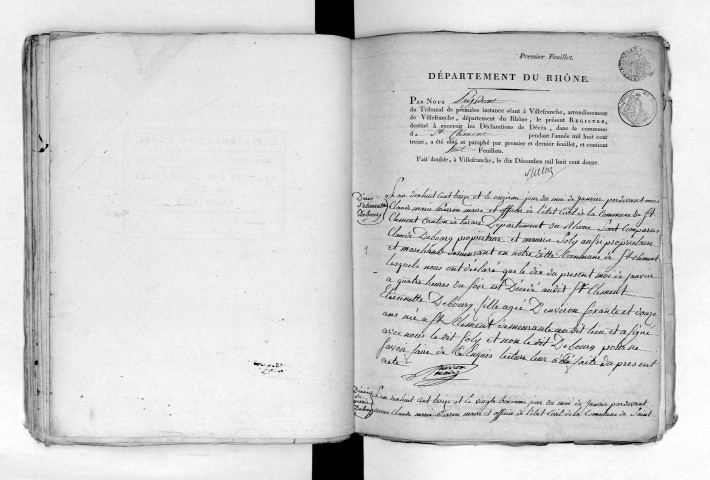 Premier Feuillet.
DÉPARTEMENT DU RHÔNE.
PAR NOUS Président
du Tribunal de première instance séant à Villefranche, arrondissement
de Villefranche, département du Rhône, le présent REGISTRE,
destiné à recevoir les Déclarations de Décès, dans la commune
d St Clément pendant l'année mil huit cent
treize, a été coté et paraphé par premier et dernier feuillet, et contient
huit Feuillets.
Fait double, à Villefranche, le dix Décembre mil huit cent douze.
Décès
d'Etiennette
Debourg
1
L'an dix huit cent treize et le onzième jour du mois de janvier pardevant nous
Claude marie Perron maire et officier de l'état Civil de la Commune de St
Clement canton de tarare Departement du Rhône Sont Comparus
Claude Debourg propriétaire et maurice Soly aussi propriétaire
et marchand demeurant en notre ditte Commune de St Clement
lesquels nous ont déclaré que le dix du present mois de janvier
a quatre heures du soir est Décédé audit St Clement
Etiennette Debourg fille agée D'environ soixante et douze
ans née a St Clement demeurante audit lieu et a signé
avec nous le dit Soly et non le dit Debourg pour ne
savoir faire de Enquis lecture leur a été faite du present
acte
Perron
maire
Décès
Debourg
L'an dix huit cent treize et le vingt troisieme jour du mois de janvier pardevant
nous Claude marie Perron maire et officier de l'état Civil de la Commune de Saint